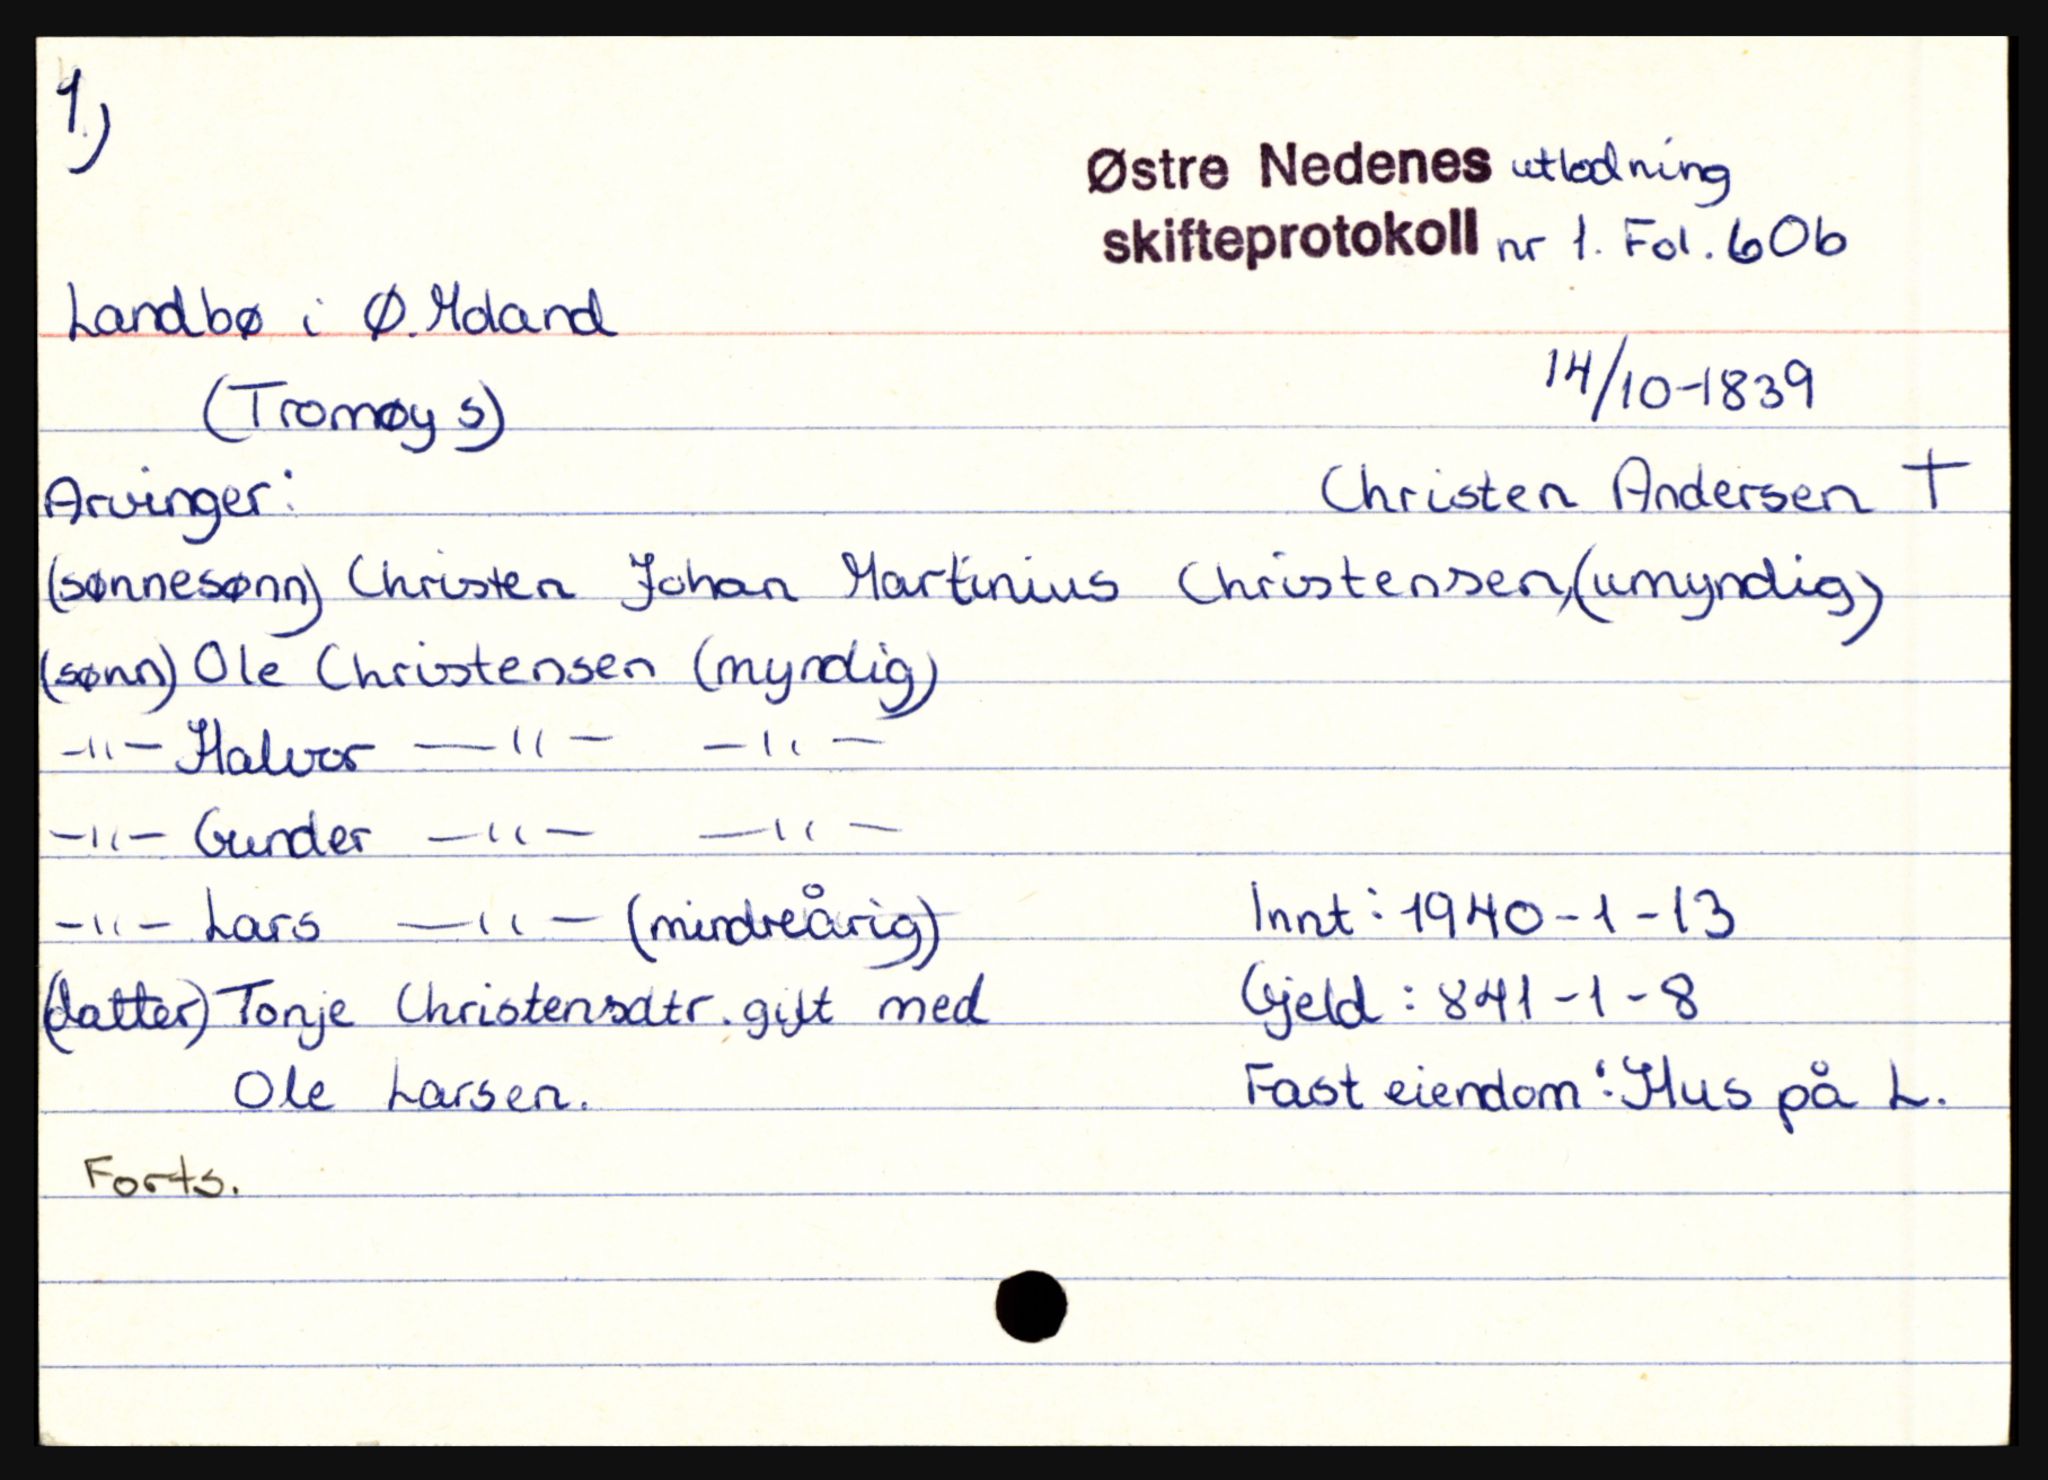 1)
Østre Nedenes utlodning
skifteprotokoll nr 1. Fol. 60b
Landbø i Ø. Moland
14/10-1839
(Tromøy s)
Arvinger:
Christen Andersen †
(sønnesønn) Christen Johan Martinius Christensen, (umyndig)
(sønn) Ole Christensen (myndig)
-"- Halvor -"- -"-
-"- Gunder -"- -"-
-"- Lars -"- (mindreårig)
Innt: 1940-1-13
(datter) Tonje Christensdtr. gift med
Gjeld: 841-1-8
Ole Larsen.
Fast eiendom: Hus på L.
Forts.